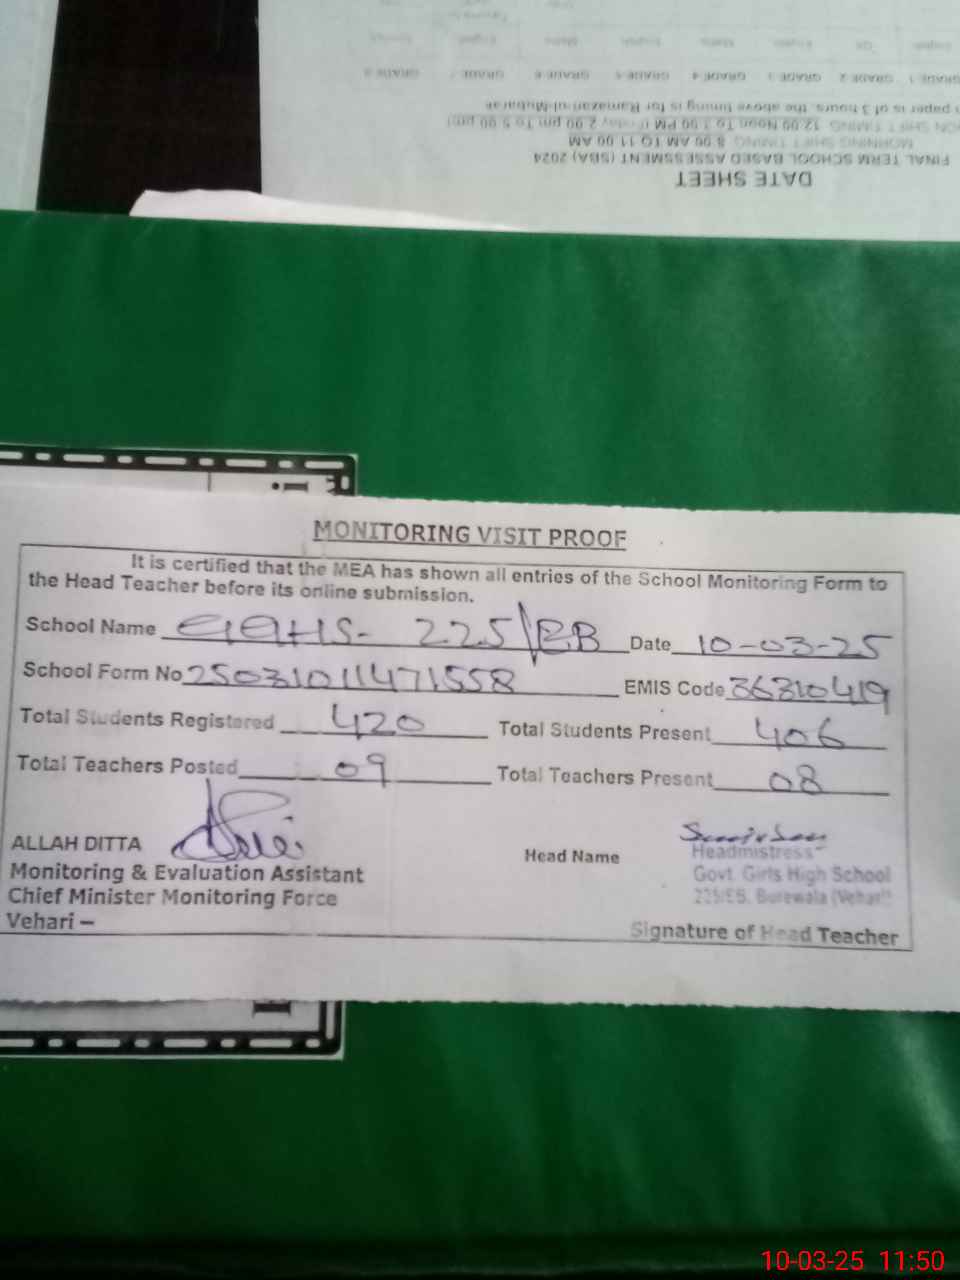 DATE SHEET
FINAL TERM SCHOOL BASED ASSESSMENT (SBA) 2024
MORNING SHIFT TIMING 8.00 AM TO 11.00 AM
SHIFT TIMING 12.00 Noon To 3.00 PM (Friday 2.00 pm To 5.00 pm)
paper is of 3 hours. the above timing is for Ramazan-ul-Mubarak
GRADE 1 GRADE 2 GRADE 3 GRADE 4 GRADE 5 GRADE 6 GRADE GRADE 8
MONITORING VISIT PROOF
It is certified that the MEA has shown all entries of the School Monitoring Form to
the Head Teacher before its online submission.
School Name GGHS- 225/EB Date 10-03-25
School Form No 25031011471558 EMIS Code 36310419
Total Students Registered 420 Total Students Present 406
Total Teachers Posted 09 Total Teachers Present 08
ALLAH DITTA
Monitoring & Evaluation Assistant
Chief Minister Monitoring Force
Vehari –
Head Name
Headmistress
Govt. Girls High School
225/EB, Burewala (Vehari)
Signature of Head Teacher
10-03-25 11:50